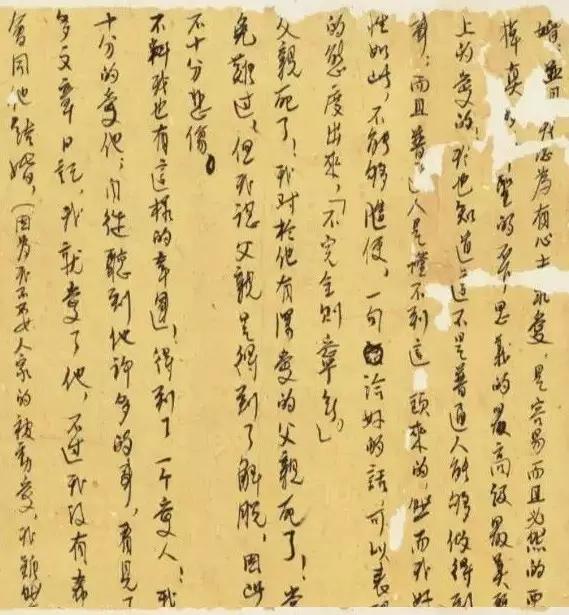 婚:並且我認為有心士求愛,是容易而且必然的要
掉真 聖的 不 思義的最高級最美
上的愛的!我也知道這不是普通人能够做得到
事;而且普 人是懂不到這一頭來的,然而我好
性如此,不能够隨便,一句恰好的話,可以表
的態度出來,「不完全則寧無。」
父親死了!我對於他有深愛的父親死了!當
免難過,但我認父親是得到了解脫,因此
不十分悲傷。
不料我也有這樣的幸運!得到了一个愛人!我
十分的愛他;自從聽到他許多的事,看見了
多文章日記,我就愛了他,不过我沒有希
會同他結婚,(因為我不要人家的被動愛,我雖然